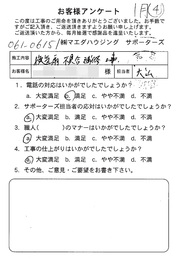 1F(4)
お客様アンケート
この度は工事のご用命を頂きありがとうございました。お手数
ですがご記入頂き、ご返送頂きますようお願い申し上げます。
ご返送頂いた方から、毎月抽選で感謝品を進呈しております。
061-0615
㈱マエダハウジング サポーターズ
施工内容
工事
担当者
1．電話の対応はいかがでしたでしょうか？
a. 大変満足 b. 満足 c. やや不満 d. 不満
2．サポーターズ担当者の対応はいかがでしたでしょうか？
a. 大変満足 b. 満足 c. やや不満 d. 不満
3．職人( )のマナーはいかがでしたでしょうか？
a. 大変満足 b. 満足 c. やや不満 d. 不満
4．工事の仕上がりはいかがでしたでしょうか？
a. 大変満足 b. 満足 c. やや不満 d. 不満
5．その他、ご意見・ご要望をお書き下さい。